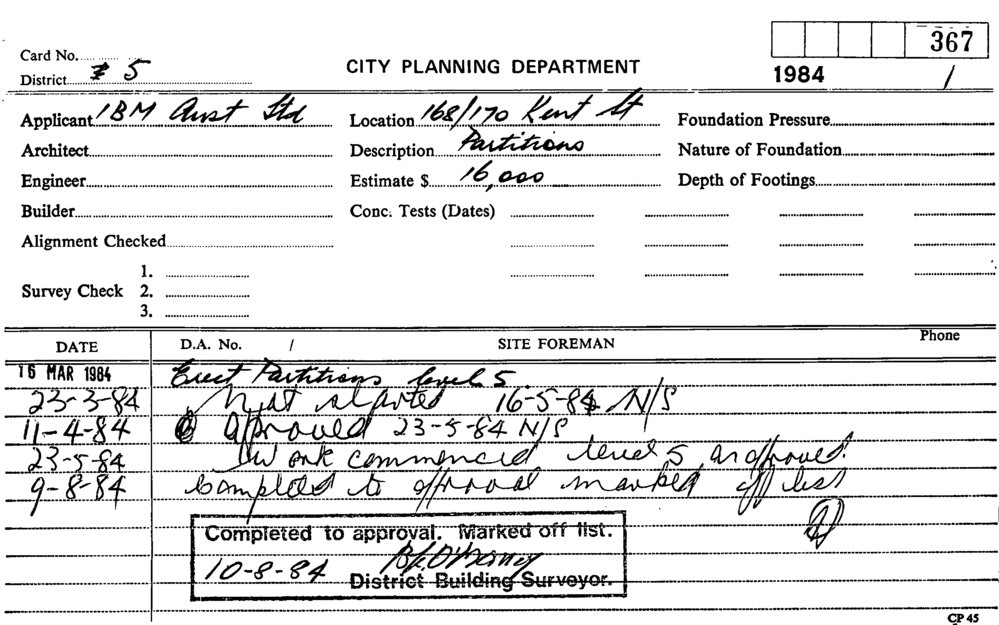 367
Card No.
District # 5
CITY PLANNING DEPARTMENT
1984 /
Applicant IBM Aust Ltd
Location 168/170 Kent St
Foundation Pressure
Architect
Description Partitions
Nature of Foundation
Engineer
Estimate $ 16,000
Depth of Footings
Builder
Conc. Tests (Dates)
Alignment Checked
Survey Check
1.
2.
3.
DATE D.A. No. / SITE FOREMAN Phone
16 MAR 1984 Erect Partitions level 5.
23-3-84 Not started 16-5-84 N/S
11-4-84 approved 23-5-84 N/S
23-5-84 Work commenced level 5 approved.
9-8-84 Completed to approval marked off list
Completed to approval. Marked off list.
10-8-84
District Building Surveyor.
CP 45